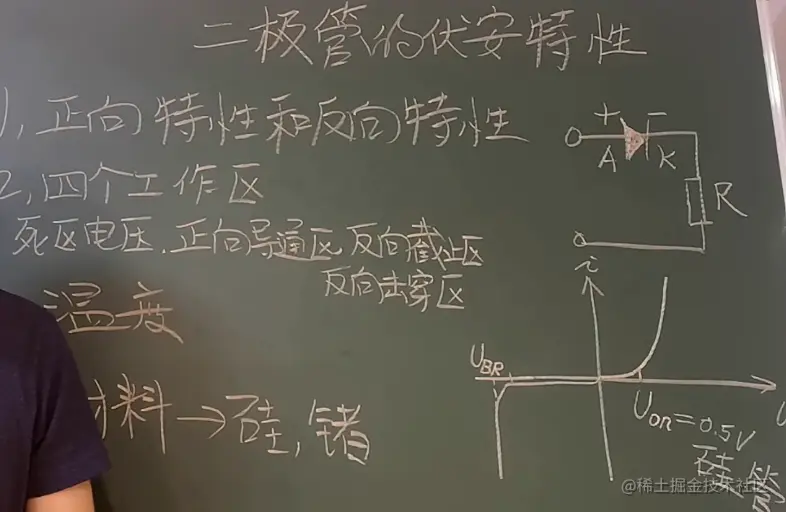 二极管的伏安特性
1，正向特性和反向特性
2，四个工作区
死区电压．正向导通区 反向截止区
反向击穿区
温度
材料→硅，锗
+ -
A K
R
i
U_BR
U_on=0.5V
硅管
@稀土掘金技术社区